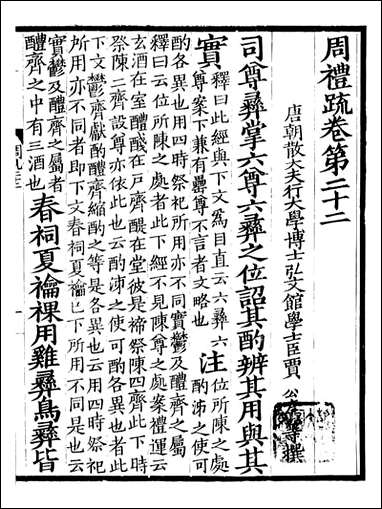 周禮疏卷第二十二
唐朝散大夫行大學博士弘文館學士臣賈 公 等撰
司尊彝掌六尊六彝之位詔其酌辨其用與其
實 釋曰此經與下文為目直云六彝六
尊案下兼有罍尊不言者文略也 注 位所陳之處
酌泲之使可
酌各異也用四時祭祀所用亦不同實鬱及醴齊之屬
釋曰云位所陳之處者此下經不見陳尊之處案禮運云
玄酒在室醴醆在戶齊醍在堂彼是禘祭陳四齊此下時
祭陳二齊設尊亦依此也云酌泲之使可酌各異也者此
下文鬱齊獻酌醴齊縮酌之等是各異也云用四時祭祀
所用亦不同者即下文春祠夏禴已下所用不同是也云
實鬱及醴齊之屬者
醴齊之中有三酒也 春祠夏禴祼用雞彝鳥彝皆